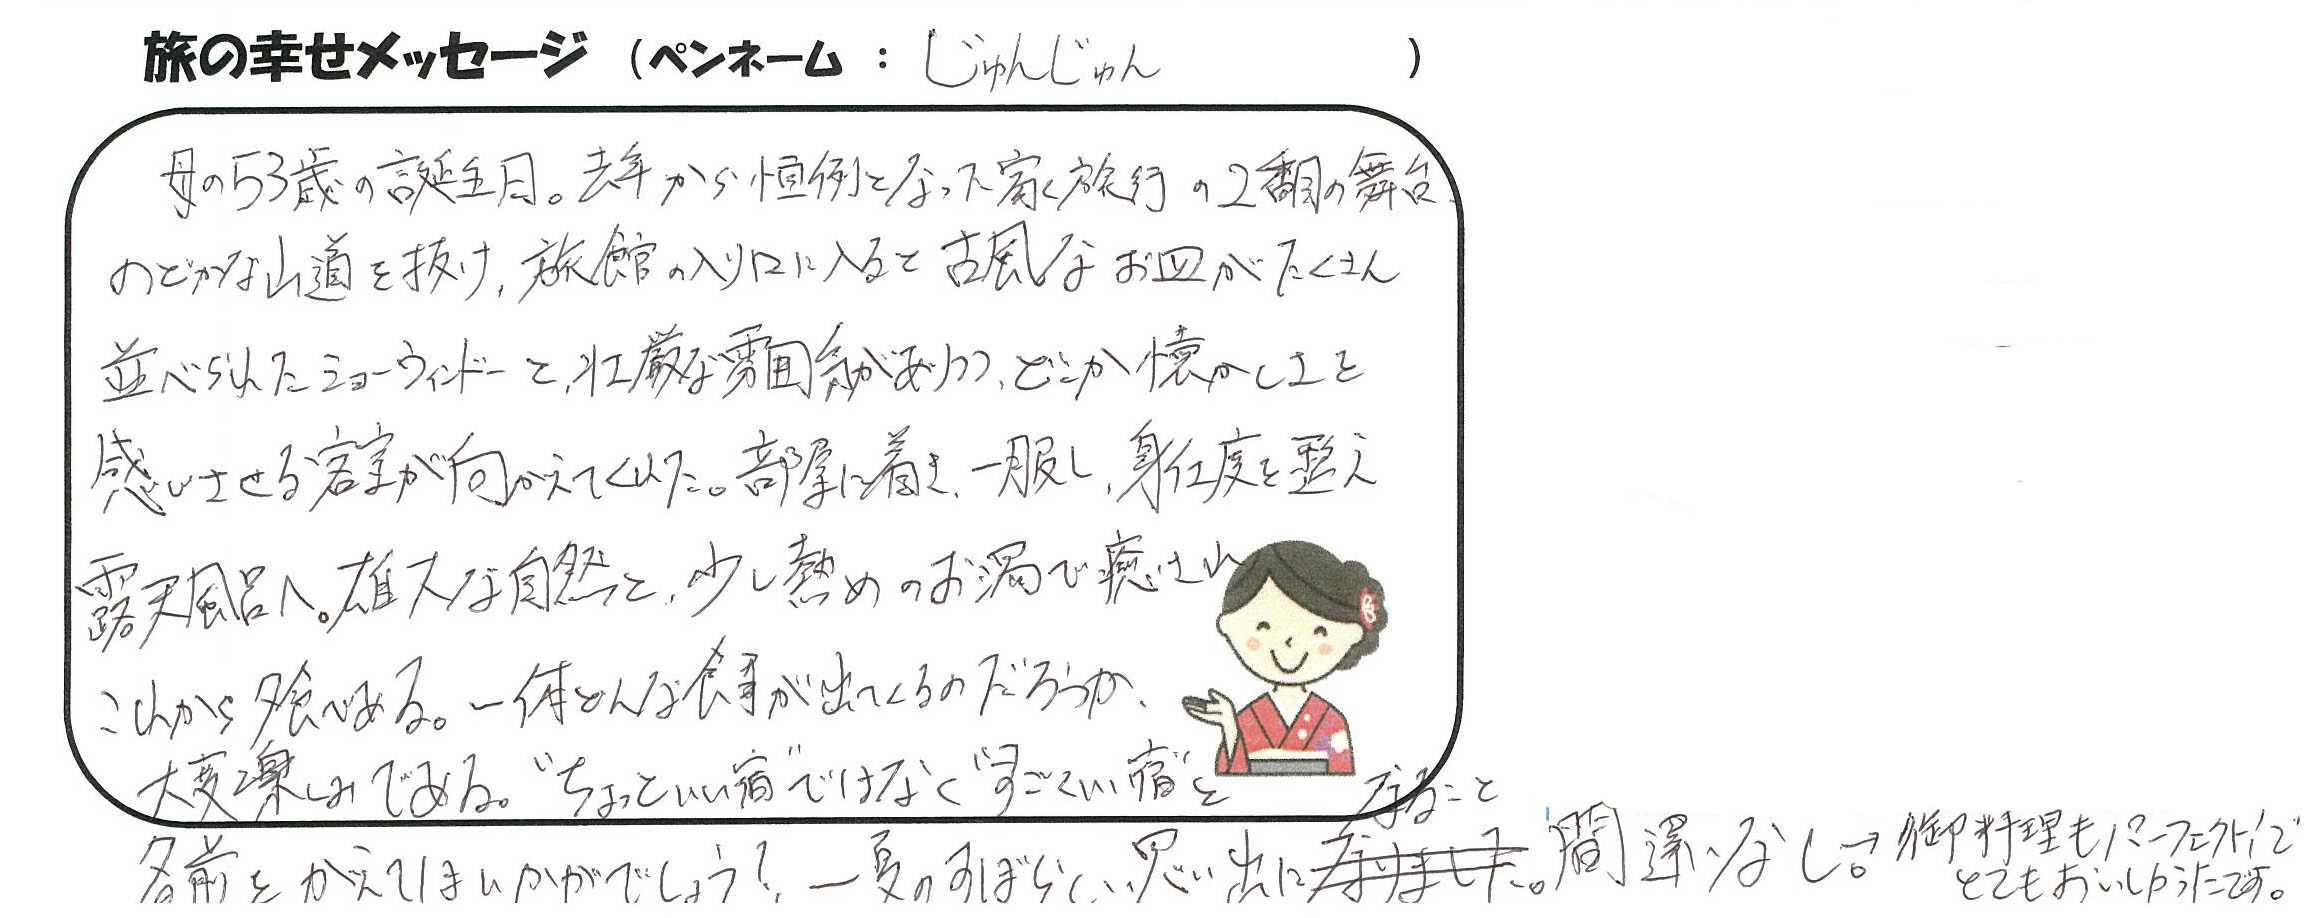 旅の幸せメッセージ (ペンネーム : じゅんじゅん )
母の53歳の誕生日。去年から恒例となった家族旅行の2番目の舞台。
のどかな山道を抜け、旅館の入り口に入ると古風なお皿がたくさん
並べられたショーウィンドーと、壮厳な雰囲気がありつつ、どこか懐かしさを
感じさせる客室が向かえてくれた。部屋に着き、一服し、身仕度を整え
露天風呂へ。雄大な自然と、少し熱めのお湯で癒され
これから夕食である。一体どんな食事が出てくるのだろうか、
大変楽しみである。"ちょっといい宿"ではなく"すごくいい宿"と
名前をかえてはいかがでしょう?、一夏のすばらしい思い出になりました。なること間違いなし。→御料理もパーフェクト!で
とてもおいしかったです。